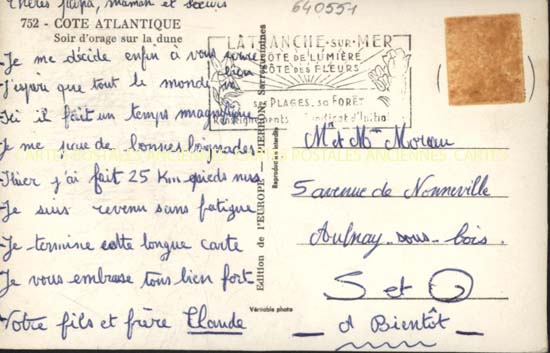 Chères papa, maman et sœurs
640551
752 - COTE ATLANTIQUE
Soir d'orage sur la dune
-Je me décide enfin à vous écrire
-J'espère que tout le monde va bien
-Ici il fait un temps magnifique
-Je me paie de bonnes baignades
-Hier j'ai fait 25 Km pieds nus
-Je suis revenu sans fatigue
-Je termine cette longue carte
-Je vous embrasse tous bien fort
-Votre fils et frère Claude
LA TRANCHE-SUR-MER
CÔTE DE LUMIÈRE
CÔTE DES FLEURS
SES PLAGES, SA FORÊT
Renseignements Syndicat d'Init
Edition de l'EUROPE — PIERRON - Sarreguemines
Reproduction interdite
Véritable photo
CARTES POSTALES ANCIENNES CARTES POSTALES ANCIENNES CARTES
Mr et Mme Moreau
5 avenue de Nonneville
Aulnay-sous-bois.
S et O
- A Bientôt -